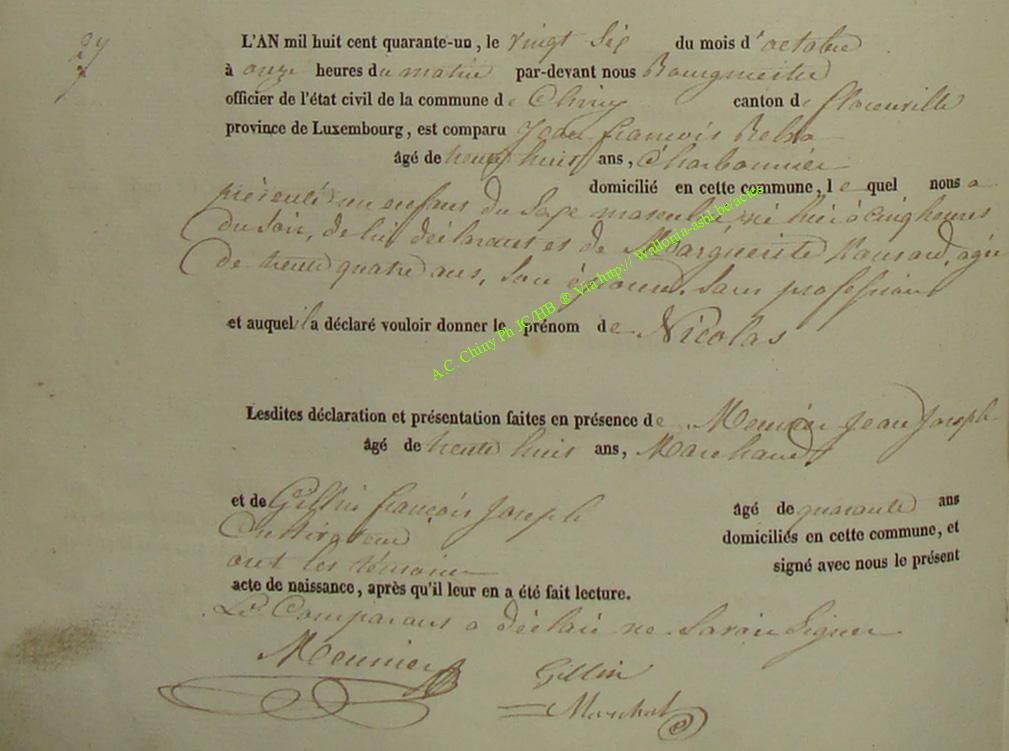 27
L'AN mil huit cent quarante-un, le vingt six du mois d'octobre
à onze heures du matin par-devant nous Bourgmestre
officier de l'état civil de la commune de Chiny canton de florenville
province de Luxembourg, est comparu Jean françois
âgé de trente huit ans, Charbonnier
domicilié en cette commune, le quel nous a
présenté un enfant du Sexe masculin, né hier à Cinq heures
du Soir, de lui déclarant et de Marguerite âgée
de trente quatre ans, Son épouse, Sans profession
et auquel il a déclaré vouloir donner le prénom de Nicolas
A.C. Chiny Ph JC/HB ® Via http:// Wallonia-asbl.be/actes
Lesdites déclaration et présentation faites en présence de Meunier Jean Joseph
âgé de trente huit ans, Marchand
et de Gillin françois Joseph âgé de quarante ans
Cultivateur domiciliés en cette commune, et
ont les témoins signé avec nous le présent
acte de naissance, après qu'il leur en a été fait lecture.
Le Comparant a déclaré ne Savoir Signer
Meunier
Gillin
Maréchal